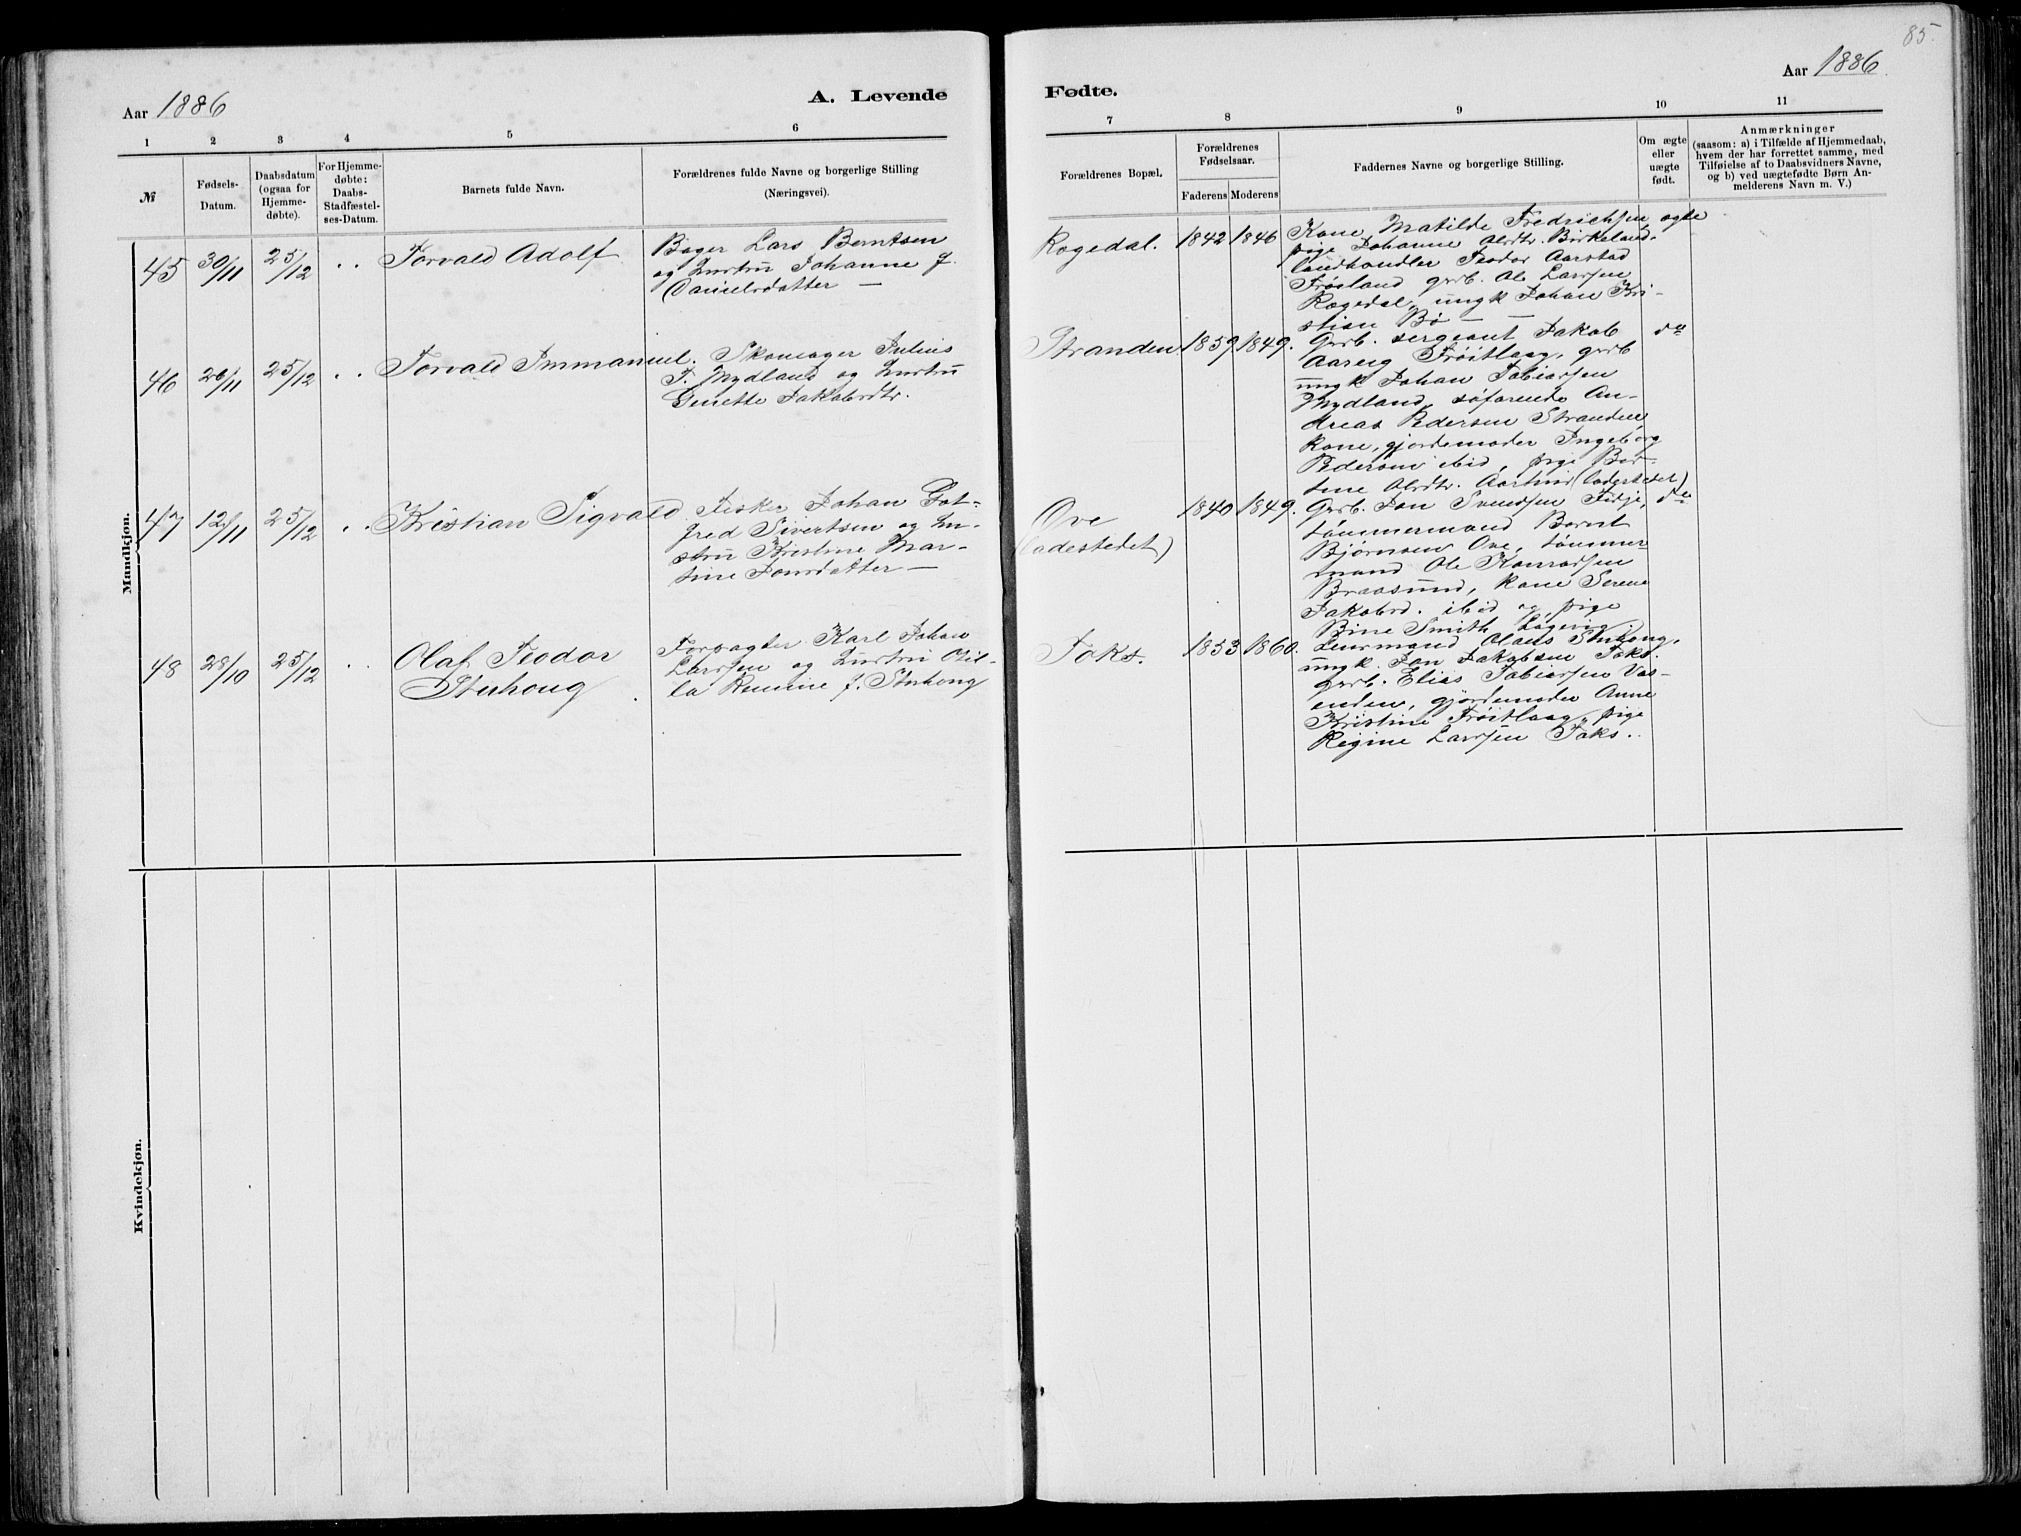 85.
Aar 1886
A. Levende
Fødte.
Aar 1886.
1 2 3 4 5 6
7 8 9 10 11
№
Fødsels-
Datum.
Daabsdatum
(ogsaa for
Hjemme-
døbte).
For Hjemme-
døbte:
Daabs-
Stadfæstel-
ses-Datum.
Barnets fulde Navn.
Forældrenes fulde Navne og borgerlige Stilling
(Næringsvei).
Forældrenes Bopæl.
Forældrenes
Fødselsaar.
Faderens
Moderens
Faddernes Navne og borgerlige Stilling.
Om ægte
eller
uægte
født.
Anmærkninger
(saasom: a) i Tilfælde af Hjemmedaab,
hvem der har forrettet samme, med
Tilføielse af to Daabsvidners Navne,
og b) ved uægtefødte Børn An-
melderens Navn m. V.)
Mandkjøn.
45 30/11 25/12 . . Torvald Adolf
Bager Lars Berntsen
og Hustru Johanne f.
Danielsdatter —
Rogedal. 1842 1846
Kone Matilde Fredrichsen, ægte
pige Johanne Olsdtr. Birkeland,
landhandler Teodor Aarstad
Frøsland grb. Ole Larssen
Rogedal, ungk Johan Kri-
stian Bø — —
46 26/11 25/12 . . Torvald Immanuel.
Skomager Julius
T. Mydland og Hustru
Genette Jakobsdtr.
Stranden 1859 1849.
Grb. sergeant Jakob do
Aareig Frøitlaag, grb
ungk Johan Tobiassen
Mydland, søfarende An-
dreas Pedersen Stranden,
kone, gjordemoder Ingeborg
Pedersen ibid, pige Ber-
tine Olsdtr. (ladestedet)
47 12/11 25/12 . . Kristian Sigvald
Fisker Johan Got-
fred Sivertsen og Hu-
stru Kristine Mar-
tine Jonsdatter —
Ove
(ladestedet)
1840 1849.
Grb. Jon Svendsen Fidje, do
tømmermand Bernt
Bjørnsen Ove, tømmer-
mand Ole Konradsen
Braasund, kone Serene
Jakobsd. ibid og pige
Bine Smith Løgevig.
48 28/10 25/12 . . Olaf Teodor
Stuhoug
Forpagter Karl Johan
Larssen og Hustru Otil-
la Rumine f. Stuhoug
Foks. 1853 1860.
Lensmand Olaus Stuhoug,
ungk. Jon Jakobsen Foks.
grb. Elias Tobiassen Vas-
enden, gjordemoder Anne
Kristine Frøitlaag, pige
Regine Larssen Foks.
Kvindekjøn.